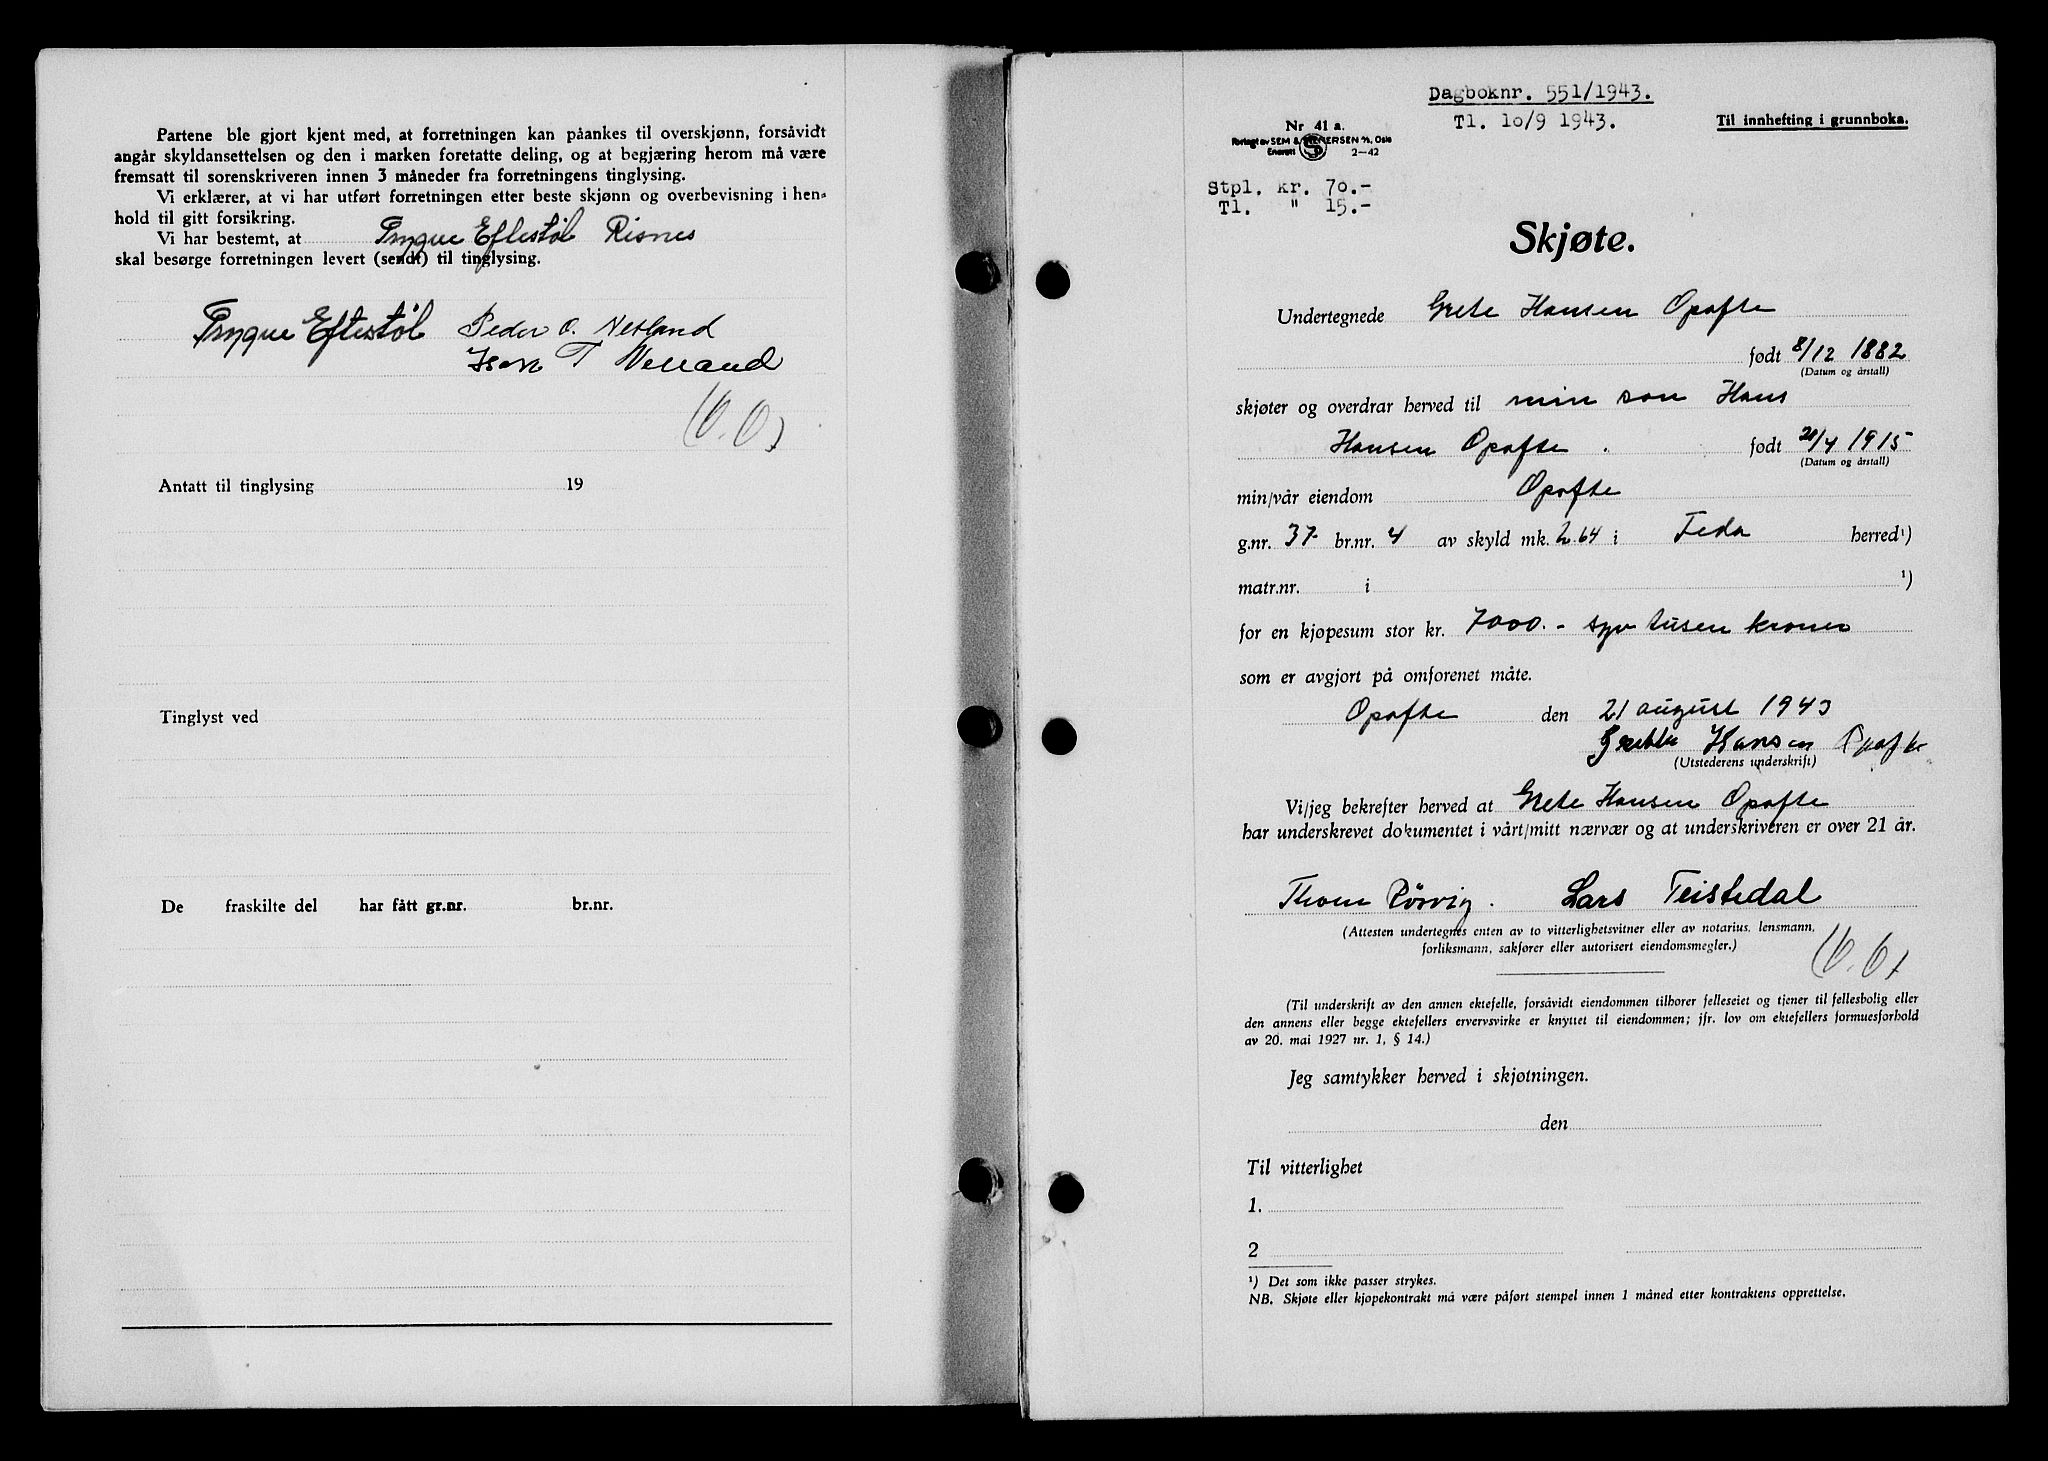 Partene ble gjort kjent med, at forretningen kan påankes til overskjønn, forsåvidt
angår skyldansettelsen og den i marken foretatte deling, og at begjæring herom må være
fremsatt til sorenskriveren innen 3 måneder fra forretningens tinglysing.
Vi erklærer, at vi har utført forretningen etter beste skjønn og overbevisning i hen-
hold til gitt forsikring.
Vi har bestemt, at Trygve Eftestøl Risnes
skal besørge forretningen levert (sendt) til tinglysing.
Trygve Eftestøl Peder O. Netland
T Netland
Antatt til tinglysing 19
Tinglyst ved
De fraskilte del har fått gr.nr. br.nr.
Dagboknr. 551/1943.
Tl. 10/9 1943.
Til innhefting i grunnboka.
Nr 41 a.
Forlagt av SEM & STENERSEN A/S, Oslo
Enerett S 2-42
Stpl. kr. 70.-
Tl. " 15.-
Skjøte.
Undertegnede Grete Hansen Opofte
født 8/12 1882
(Datum og årstall)
skjøter og overdrar herved til min son Hans
Hansen Opofte. født 20/4 1915
(Datum og årstall)
min/vår eiendom Opofte
g.nr. 37 br.nr. 4 av skyld mk. 2.64 i Feda herred¹)
matr.nr. i ¹)
for en kjøpesum stor kr. 7000.- syv tusen kroner
som er avgjort på omforenet måte.
Opofte den 21 august 1943
Hansen Opofte
(Utstederens underskrift)
Vi/jeg bekrefter herved at Grete Hansen Opofte
har underskrevet dokumentet i vårt/mitt nærvær og at underskriveren er over 21 år.
Thom Rörvig. Lars Teistedal
(Attesten undertegnes enten av to vitterlighetsvitner eller av notarius, lensmann,
forliksmann, sakfører eller autorisert eiendomsmegler.)
(Til underskrift av den annen ektefelle, forsåvidt eiendommen tilhører felleseiet og tjener til fellesbolig eller
den annens eller begge ektefellers ervervsvirke er knyttet til eiendommen; jfr. lov om ektefellers formuesforhold
av 20. mai 1927 nr. 1, § 14.)
Jeg samtykker herved i skjøtningen.
den
Til vitterlighet
1.
2
¹) Det som ikke passer strykes.
NB. Skjøte eller kjøpekontrakt må være påført stempel innen 1 måned etter kontraktens opprettelse.